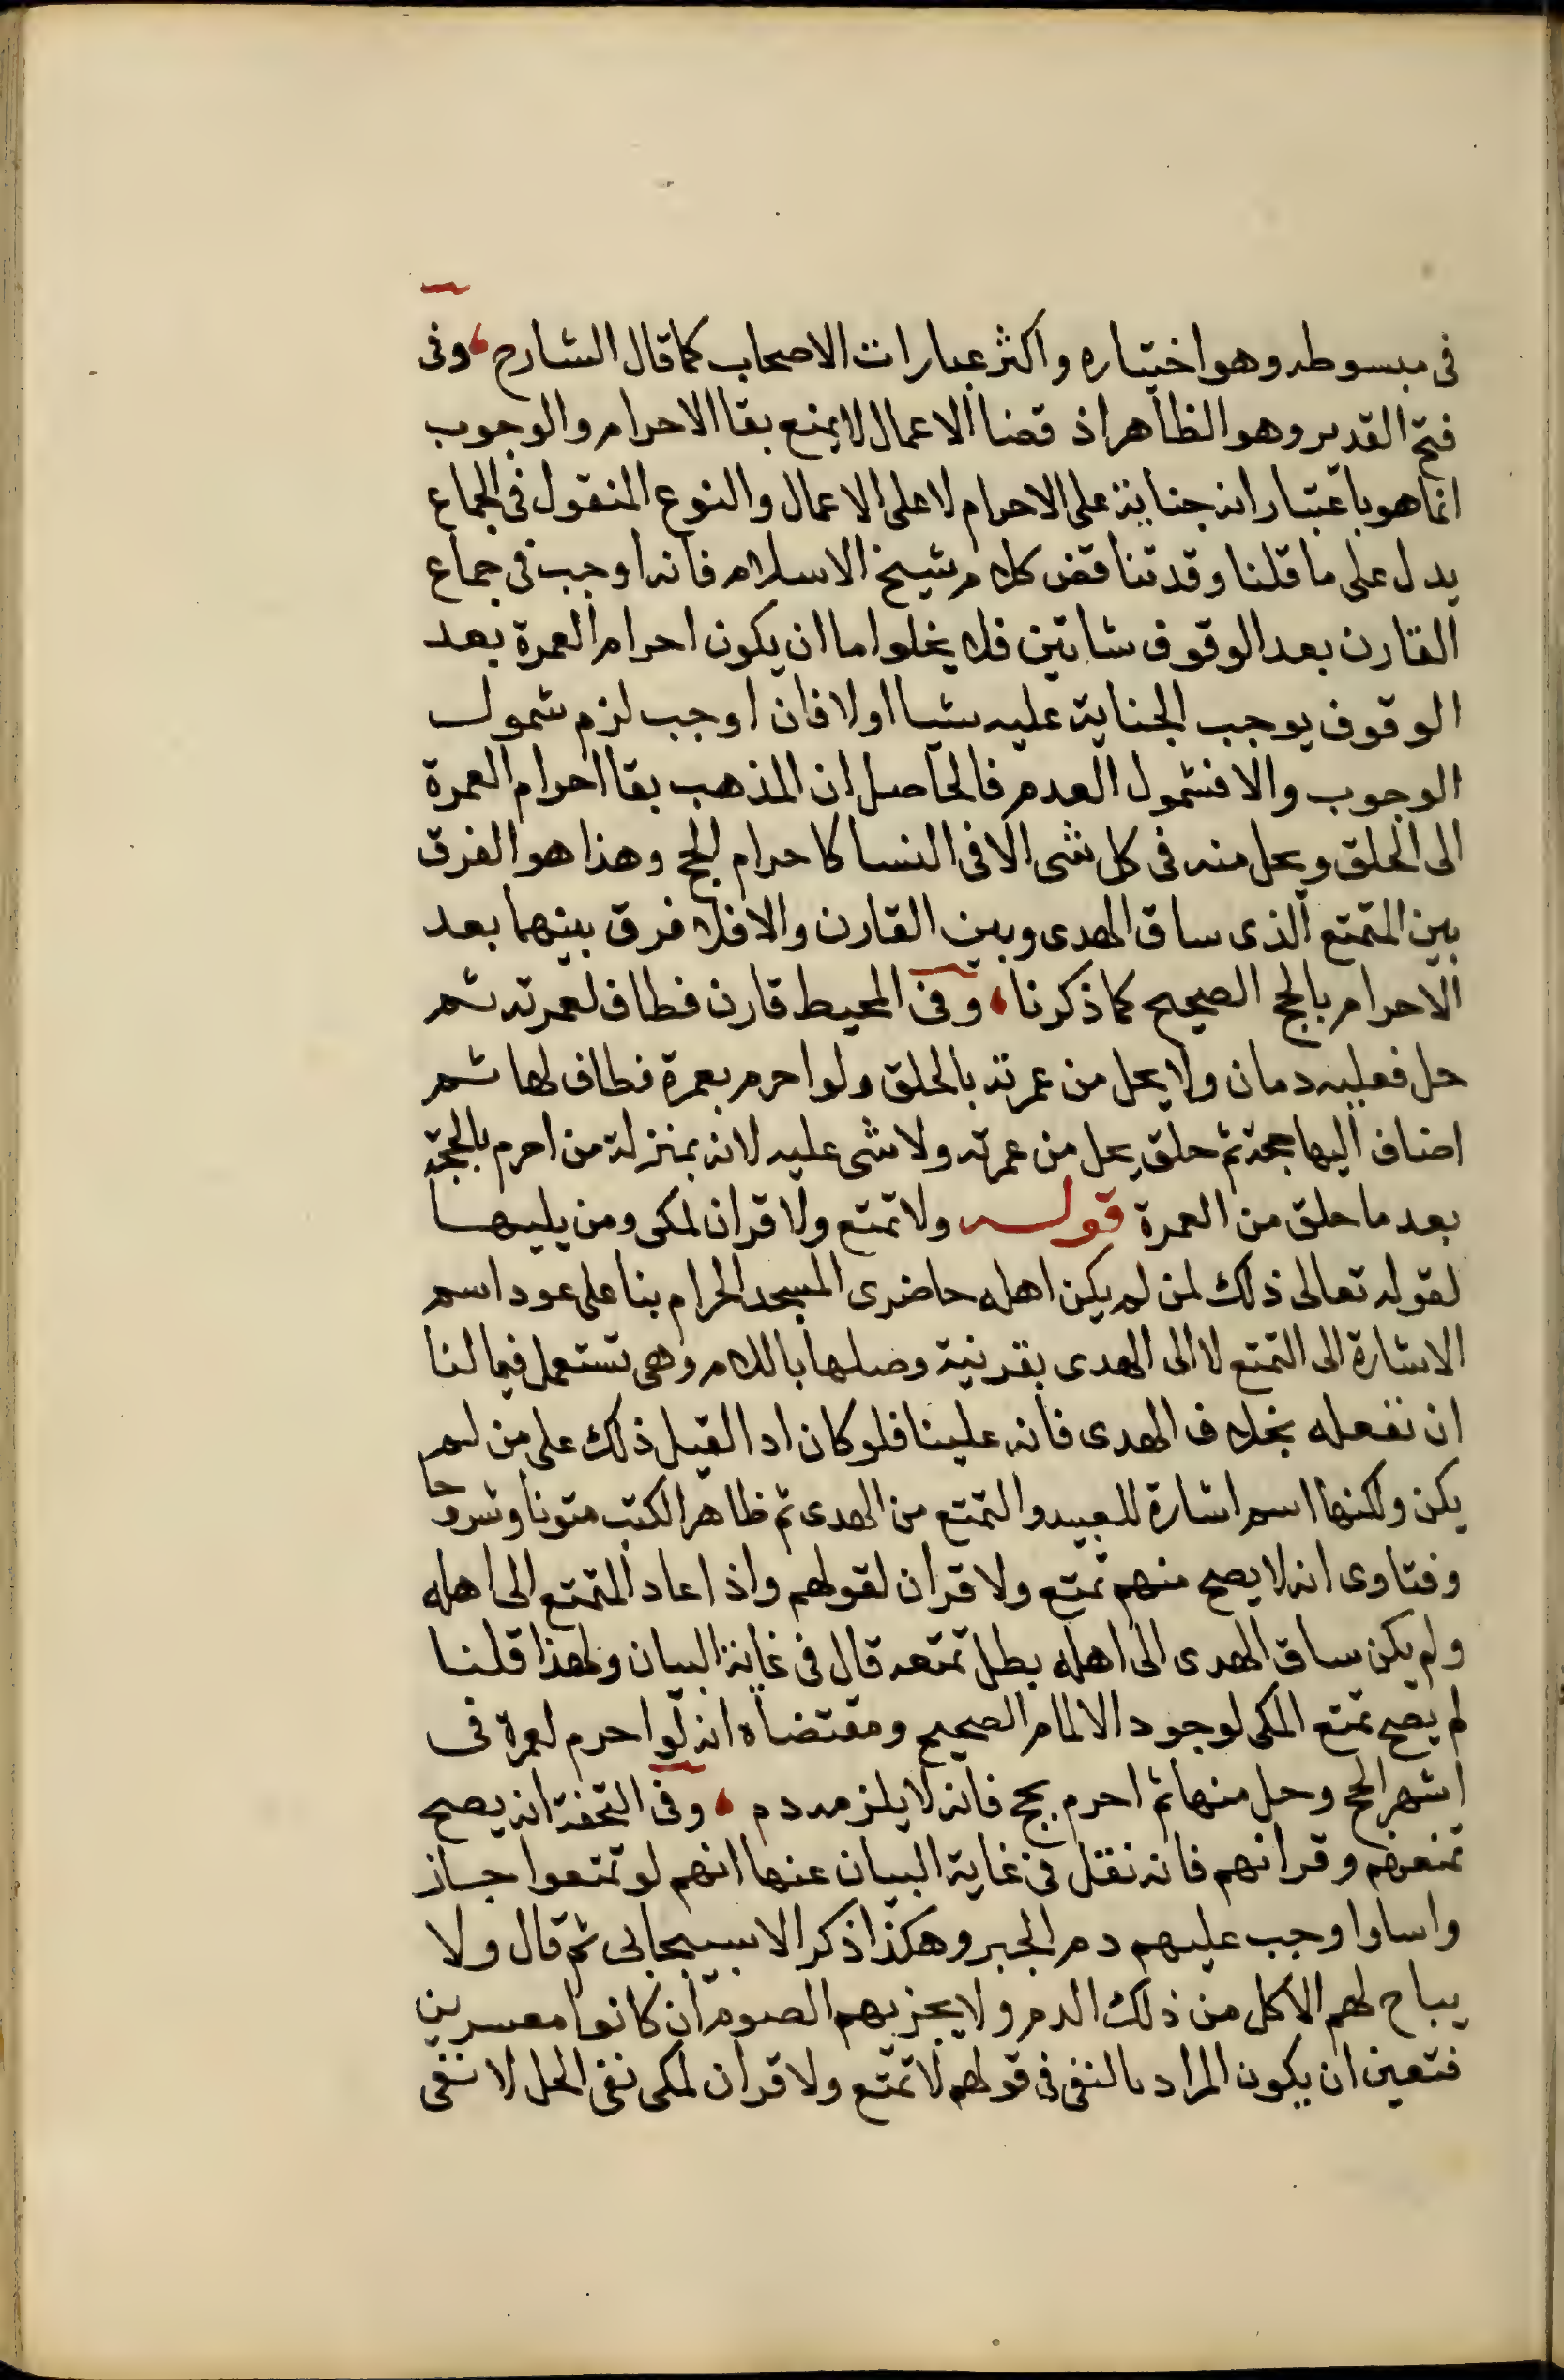 فى مبسوطه وهو اختياره واكثر عبارات الاصحاب كما قال الشارح وفى
فتح القدير وهو الظاهر اذ قضا الاعمال لا يمنع بقا الاحرام والوجوب
انما هو باعتبار انه جناية على الاحرام لا على الاعمال والنوع المنقول فى الجماع
يدل على ما قلنا وقد تناقض كلام شيخ الاسلام فانه اوجب فى جماع
القارن بعد الوقوف شاتين فلا يخلوا ما ان يكون احرام العمرة بعد
الوقوف يوجب الجناية عليه شيا اولا فان اوجب لزم شمول
الوجوب والا فشمول العدم فالحاصل ان المذهب بقا احرام العمرة
الى الحلق ويحل منه فى كل شى الا فى النسا كاحرام الحج وهذا هو الفرق
بين المتمتع الذى ساق الهدى وبين القارن والا فلا فرق بينهما بعد
الاحرام بالحج الصحيح كما ذكرنا وفى المحيط قارن فطاف لعمرته ثم
حل فعليه دمان ولا يحل من عمرته بالحلق ولو احرم بعمرة فطاف لها ثم
اضاف اليها حجة ثم حلق يحل من عمرته ولا شى عليه لانه بمنزلة من احرم بالحجة
بعد ما حلق من العمرة قوله ولا تمتع ولا قران لمكى ومن يليها
لقوله تعالى ذلك لمن لم يكن اهله حاضرى المسجد الحرام بنا على عود اسم
الاشارة الى التمتع لا الى الهدى بقرنية وصلها باللام وهى تستعمل فيما لنا
ان نفعله بخلاف الهدى فانه علينا فلو كان اد القيل ذلك على من لم
يكن ولكنها اسم اشارة للبعيد والتمتع من الهدى ثم ظاهر الكتب متونا وشروحا
وفتاوى انه لا يصح منهم تمتع ولا قران لقولهم واذا عاد المتمتع الى اهله
ولم يكن ساق الهدى الى اهله بطل تمتعه قال فى غاية البيان ولهذا قلنا
لم يصح تمتع المكى لوجود الالمام الصحيح ومقتضاه انه لو احرم لعمرة فى
اشهر الحج وحل منها ثم احرم بحج فانه لا يلزمه دم وفى التحفة انه يصح
تمتعهم وقرانهم فانه نقل فى غاية البيان عنها انهم لو تمتعوا جاز
واساوا وجب عليهم دم الجبر وهكذا ذكر الاسبيجابى ثم قال ولا
يباح لهم الاكل من ذلك الدم ولا يجزيهم الصوم ان كانوا معسرين
فتعين ان يكون المراد بالنفى فى قولهم لا تمتع ولا قران لمكى نفى الحل لا نفى